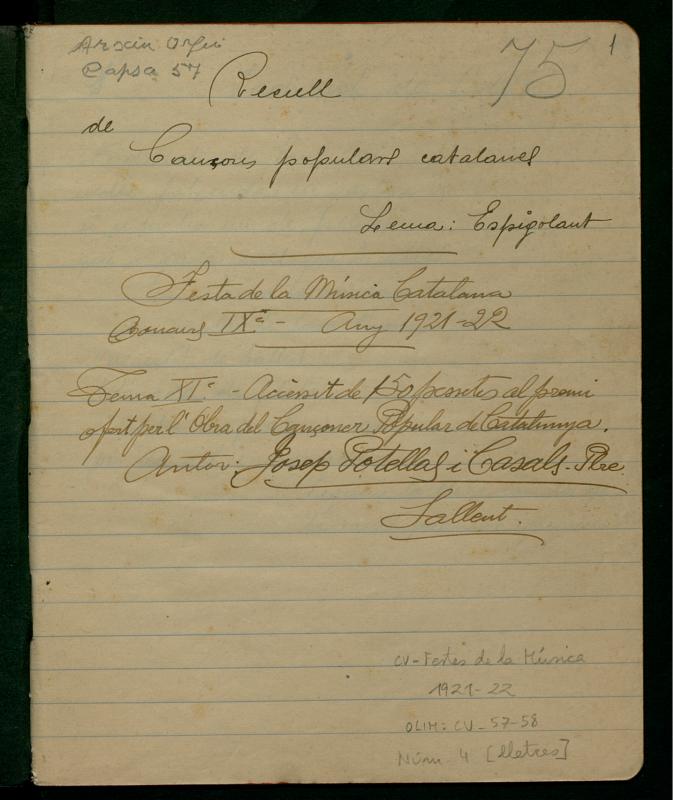 Arxiu Orfeó
Capsa 57
75
1
Recull
de
Cançons populars catalanes
Lema: Espigolant
Festa de la Música Catalana
Concurs IXª - Any 1921-22
Tema XIè - Accèssit de 150 pessetes al premi
ofert per l'Obra del Cançoner Popular de Catalunya.
Autor: Josep Potellas i Casals - Pbre
Sallent.
CV - Festes de la Música
1921-22
OLIM: CV - 57-58
Núm. 4 [lletres]